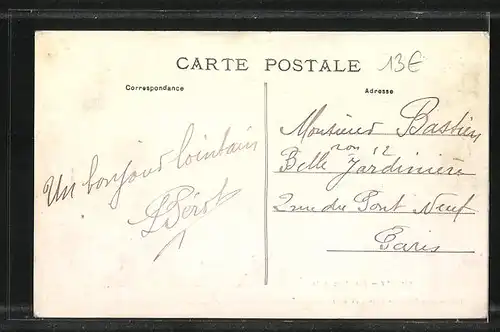 CARTE POSTALE
13€
Correspondance
Adresse
Un bonjour lointain
Monsieur Bastien
Belle Jardinière
2 rue du Pont Neuf
Paris